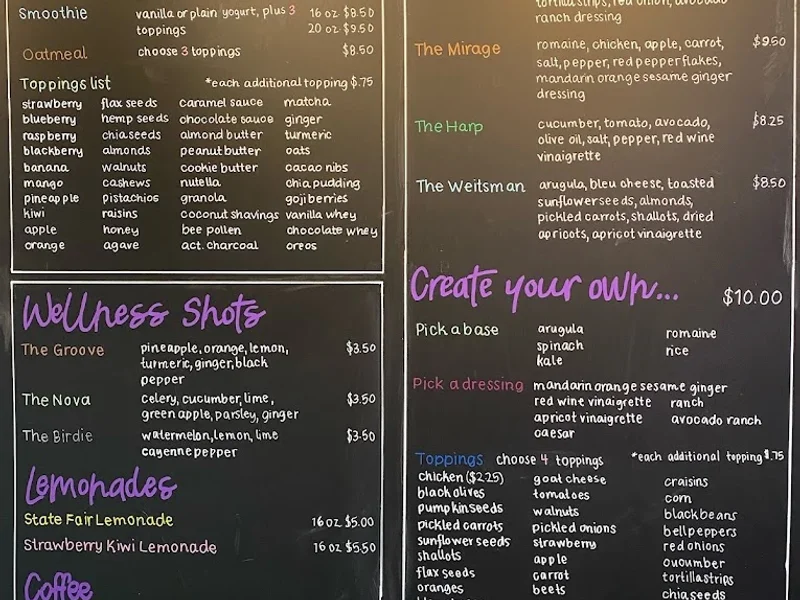 Smoothie vanilla or plain yogurt, plus 3 16 oz $8.50
toppings 20 oz $9.50
Oatmeal choose 3 toppings $8.50
Toppings list *each additional topping $.75
strawberry flax seeds caramel sauce matcha
blueberry hemp seeds chocolate sauce ginger
raspberry chia seeds almond butter turmeric
blackberry almonds peanut butter oats
banana walnuts cookie butter cacao nibs
mango cashews nutella chia pudding
pineapple pistachios granola goji berries
kiwi raisins coconut shavings vanilla whey
apple honey bee pollen chocolate whey
orange agave act. charcoal oreos
Wellness Shots
The Groove pineapple, orange, lemon, $3.50
turmeric, ginger, black
pepper
The Nova celery, cucumber, lime, $3.50
green apple, parsley, ginger
The Birdie watermelon, lemon, lime $3.50
cayenne pepper
Lemonades
State Fair Lemonade 16 oz $5.00
Strawberry Kiwi Lemonade 16 oz $5.50
Coffee
tortilla strips, red onion, avocado
ranch dressing
The Mirage romaine, chicken, apple, carrot, $9.50
salt, pepper, red pepper flakes,
mandarin orange sesame ginger
dressing
The Harp cucumber, tomato, avocado, $8.25
olive oil, salt, pepper, red wine
vinaigrette
The Weitsman arugula, bleu cheese, toasted $8.50
sunflower seeds, almonds,
pickled carrots, shallots, dried
apricots, apricot vinaigrette
Create your own... $10.00
Pick a base arugula romaine
spinach rice
kale
Pick a dressing mandarin orange sesame ginger
red wine vinaigrette ranch
apricot vinaigrette avocado ranch
caesar
Toppings choose 4 toppings *each additional topping $.75
chicken ($2.25) goat cheese craisins
black olives tomatoes corn
pumpkin seeds walnuts black beans
pickled carrots pickled onions bell peppers
sunflower seeds strawberry red onions
shallots apple cucumber
flax seeds carrot tortilla strips
oranges beets chia seeds